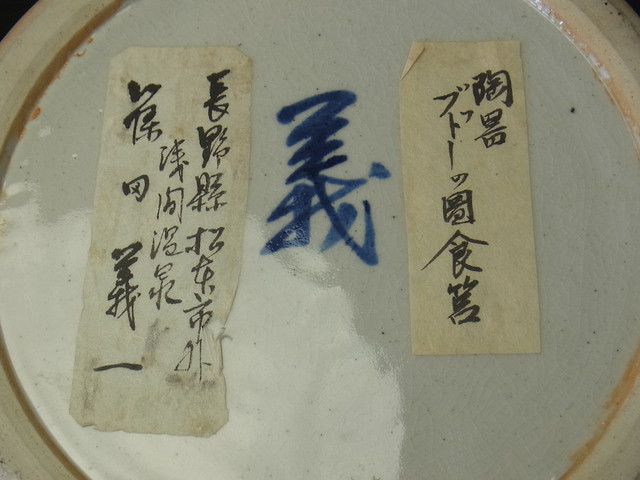 陶器
ブドーノ圖食筥
義
長野縣松本市外
浅间温泉
篠田義一